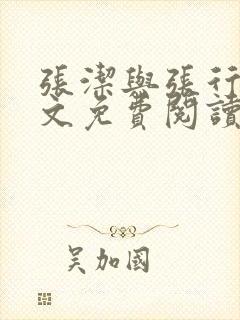 張潔與張行
文免費閱讀
吴加國